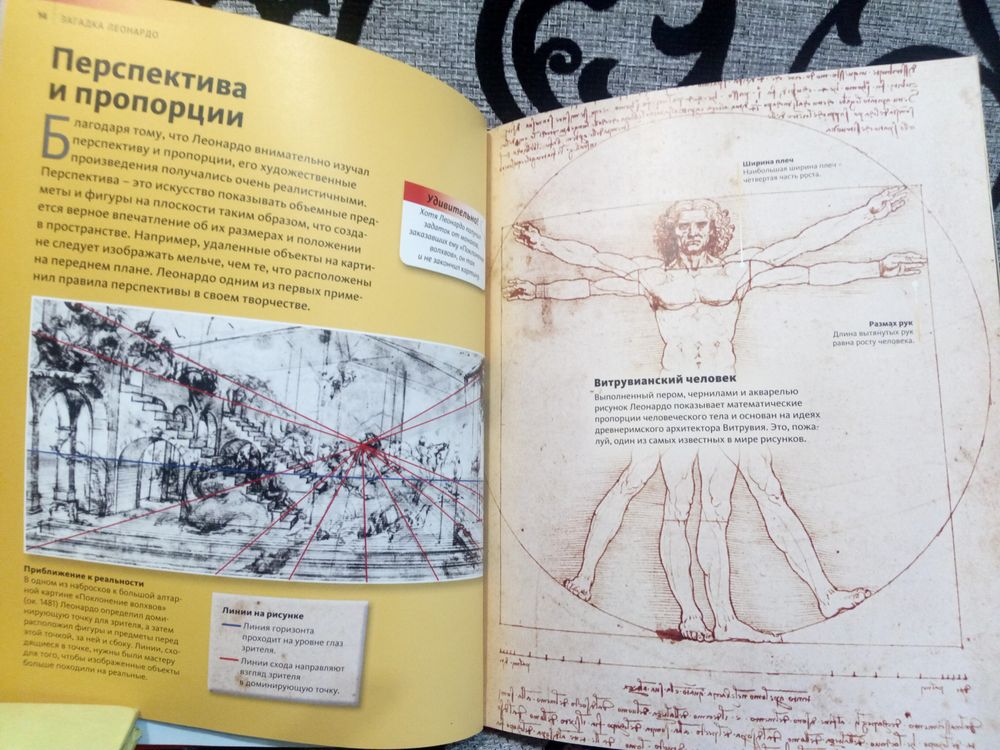 98 ЗАГАДКА ЛЕОНАРДО
Перспектива
и пропорции
Благодаря тому, что Леонардо внимательно изучал
перспективу и пропорции, его художественные
произведения получались очень реалистичными.
Перспектива – это искусство показывать объемные пред-
меты и фигуры на плоскости таким образом, что созда-
ется верное впечатление об их размерах и положении
в пространстве. Например, удаленные объекты на карти-
не следует изображать мельче, чем те, что расположены
на переднем плане. Леонардо одним из первых приме-
нил правила перспективы в своем творчестве.
Удивительно!
Хотя Леонардо получил
задаток от монахов,
заказавших ему «Поклонение
волхвов», он так
и не закончил картину.
Приближение к реальности
В одном из набросков к большой алтар-
ной картине «Поклонение волхвов»
(ок. 1481) Леонардо определил доми-
нирующую точку для зрителя, а затем
расположил фигуры и предметы перед
этой точкой, за ней и сбоку. Линии, схо-
дящиеся в точке, нужны были мастеру
для того, чтобы изображенные объекты
больше походили на реальные.
Линии на рисунке
Линия горизонта
проходит на уровне глаз
зрителя.
Линии схода направляют
взгляд зрителя
в доминирующую точку.
Ширина плеч
Наибольшая ширина плеч –
четвертая часть роста.
Размах рук
Длина вытянутых рук
равна росту человека.
Витрувианский человек
Выполненный пером, чернилами и акварелью
рисунок Леонардо показывает математические
пропорции человеческого тела и основан на идеях
древнеримского архитектора Витрувия. Это, пожа-
луй, один из самых известных в мире рисунков.